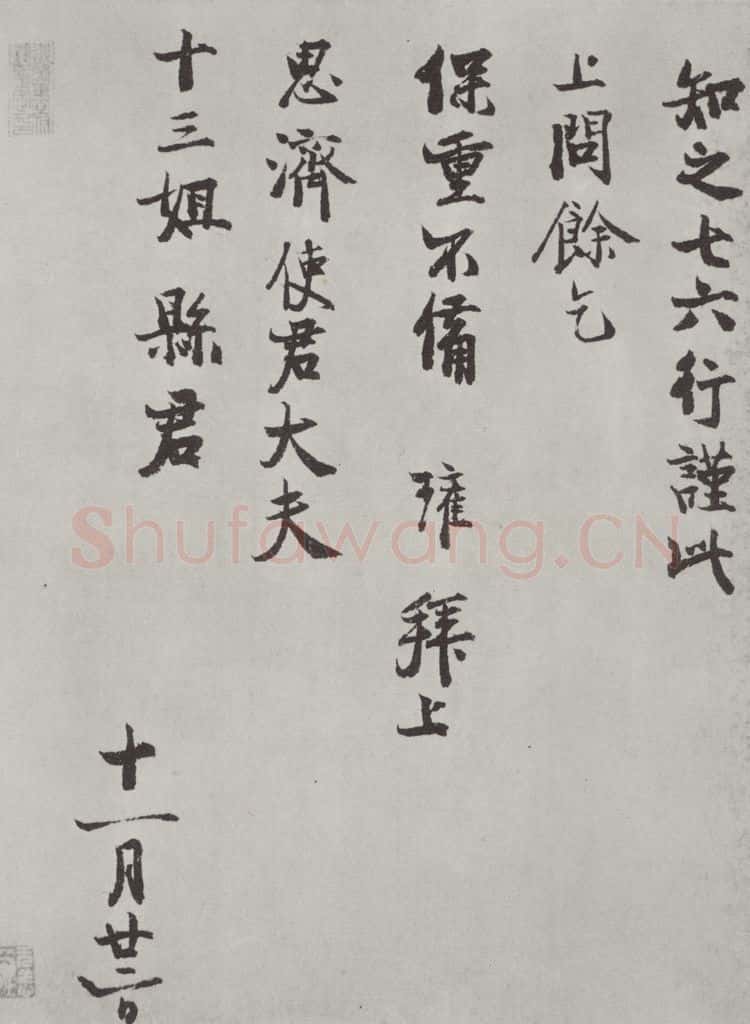 知之七六行謹此
上問餘乞
保重不備 瓘拜上
思濟使君大夫
十三姐縣君
十一月廿二日
Shufawang.CN